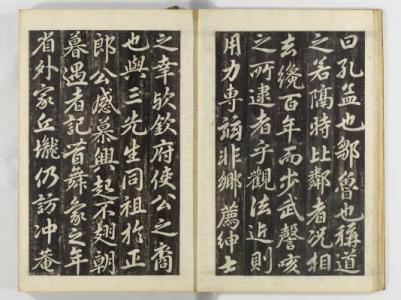 曰孔孟也鄒魯也稱道
之若隔時比鄰者況相
去纔百年而步武謦咳
之所逮者乎觀法近則
用力專非鄉薦紳士
之幸欤欽府使公之裔
也與三先生同祖於正
郎公感慕興起不翅朝
暮遇者記首舞象之年
省外家丘壠仍訪冲菴